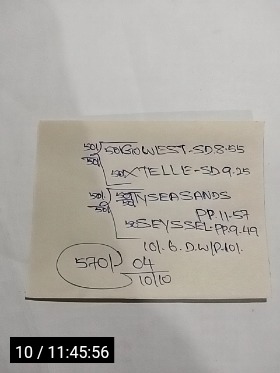 50/- 50/- GOWEST-SD 8.55
50/- 50/- XTELLE-SD 9.25
50/- TYSEASANDS
PP.11-57
SEYSSEL-PP.9.49
10/- G.D.W/P.10/-
570/- 04
10/10
10 / 11:45:56